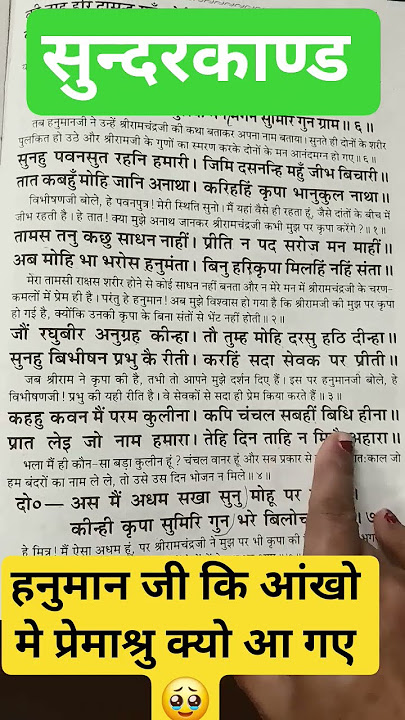 सुन्दरकाण्ड
सुमिरि गुन ग्राम॥ ६॥
तब हनुमानजी ने उन्हें श्रीरामचंद्रजी की कथा बताकर अपना नाम बताया। सुनते ही दोनों के शरीर
पुलकित हो उठे और श्रीरामजी के गुणों का स्मरण करके दोनों के मन आनंदमग्न हो गए॥ ६॥
सुनहु पवनसुत रहनि हमारी। जिमि दसनन्हि महुँ जीभ बिचारी॥
तात कबहुँ मोहि जानि अनाथा। करिहहिं कृपा भानुकुल नाथा॥
विभीषणजी बोले, हे पवनपुत्र! मेरी स्थिति सुनो। मैं यहां वैसे ही रहता हूं, जैसे दांतों के बीच में
जीभ रहती है। हे तात! क्या मुझे अनाथ जानकर श्रीरामचंद्रजी कभी मुझ पर कृपा करेंगे?॥ १॥
तामस तनु कछु साधन नाहीं। प्रीति न पद सरोज मन माहीं॥
अब मोहि भा भरोस हनुमंता। बिनु हरिकृपा मिलहिं नहिं संता॥
मेरा तामसी राक्षस शरीर होने से कोई साधन नहीं बनता और न मेरे मन में श्रीरामचंद्रजी के चरण-
कमलों में प्रेम ही है। परंतु हे हनुमान! अब मुझे विश्वास हो गया है कि श्रीरामजी की मुझ पर कृपा
हो गई है, क्योंकि उनकी कृपा के बिना संतों से भेंट नहीं होती॥ २॥
जौं रघुबीर अनुग्रह कीन्हा। तौ तुम्ह मोहि दरसु हठि दीन्हा॥
सुनहु बिभीषन प्रभु कै रीती। करहिं सदा सेवक पर प्रीती॥
जब श्रीराम ने कृपा की है, तभी तो आपने मुझे दर्शन दिए हैं। इस पर हनुमानजी बोले, हे
विभीषणजी! प्रभु की यही रीति है। वे सेवकों से सदा ही प्रेम किया करते हैं॥ ३॥
कहहु कवन मैं परम कुलीना। कपि चंचल सबहीं बिधि हीना॥
प्रात लेइ जो नाम हमारा। तेहि दिन ताहि न अहारा॥
भला मैं ही कौन-सा बड़ा कुलीन हूं? चंचल वानर हूं और सब प्रकार से काल जो
हम बंदरों का नाम ले ले, तो उसे उस दिन भोजन न मिले॥ ४॥
दो०— अस मैं अधम सखा सुनु मोहू पर
कीन्ही कृपा सुमिरि गुन भरे बिलोच
हे मित्र! मैं ऐसा अधम हूं, पर श्रीरामचंद्रजी ने मुझ पर भी कृपा की
हनुमान जी कि आंखो
मे प्रेमाश्रु क्यो आ गए
🥹